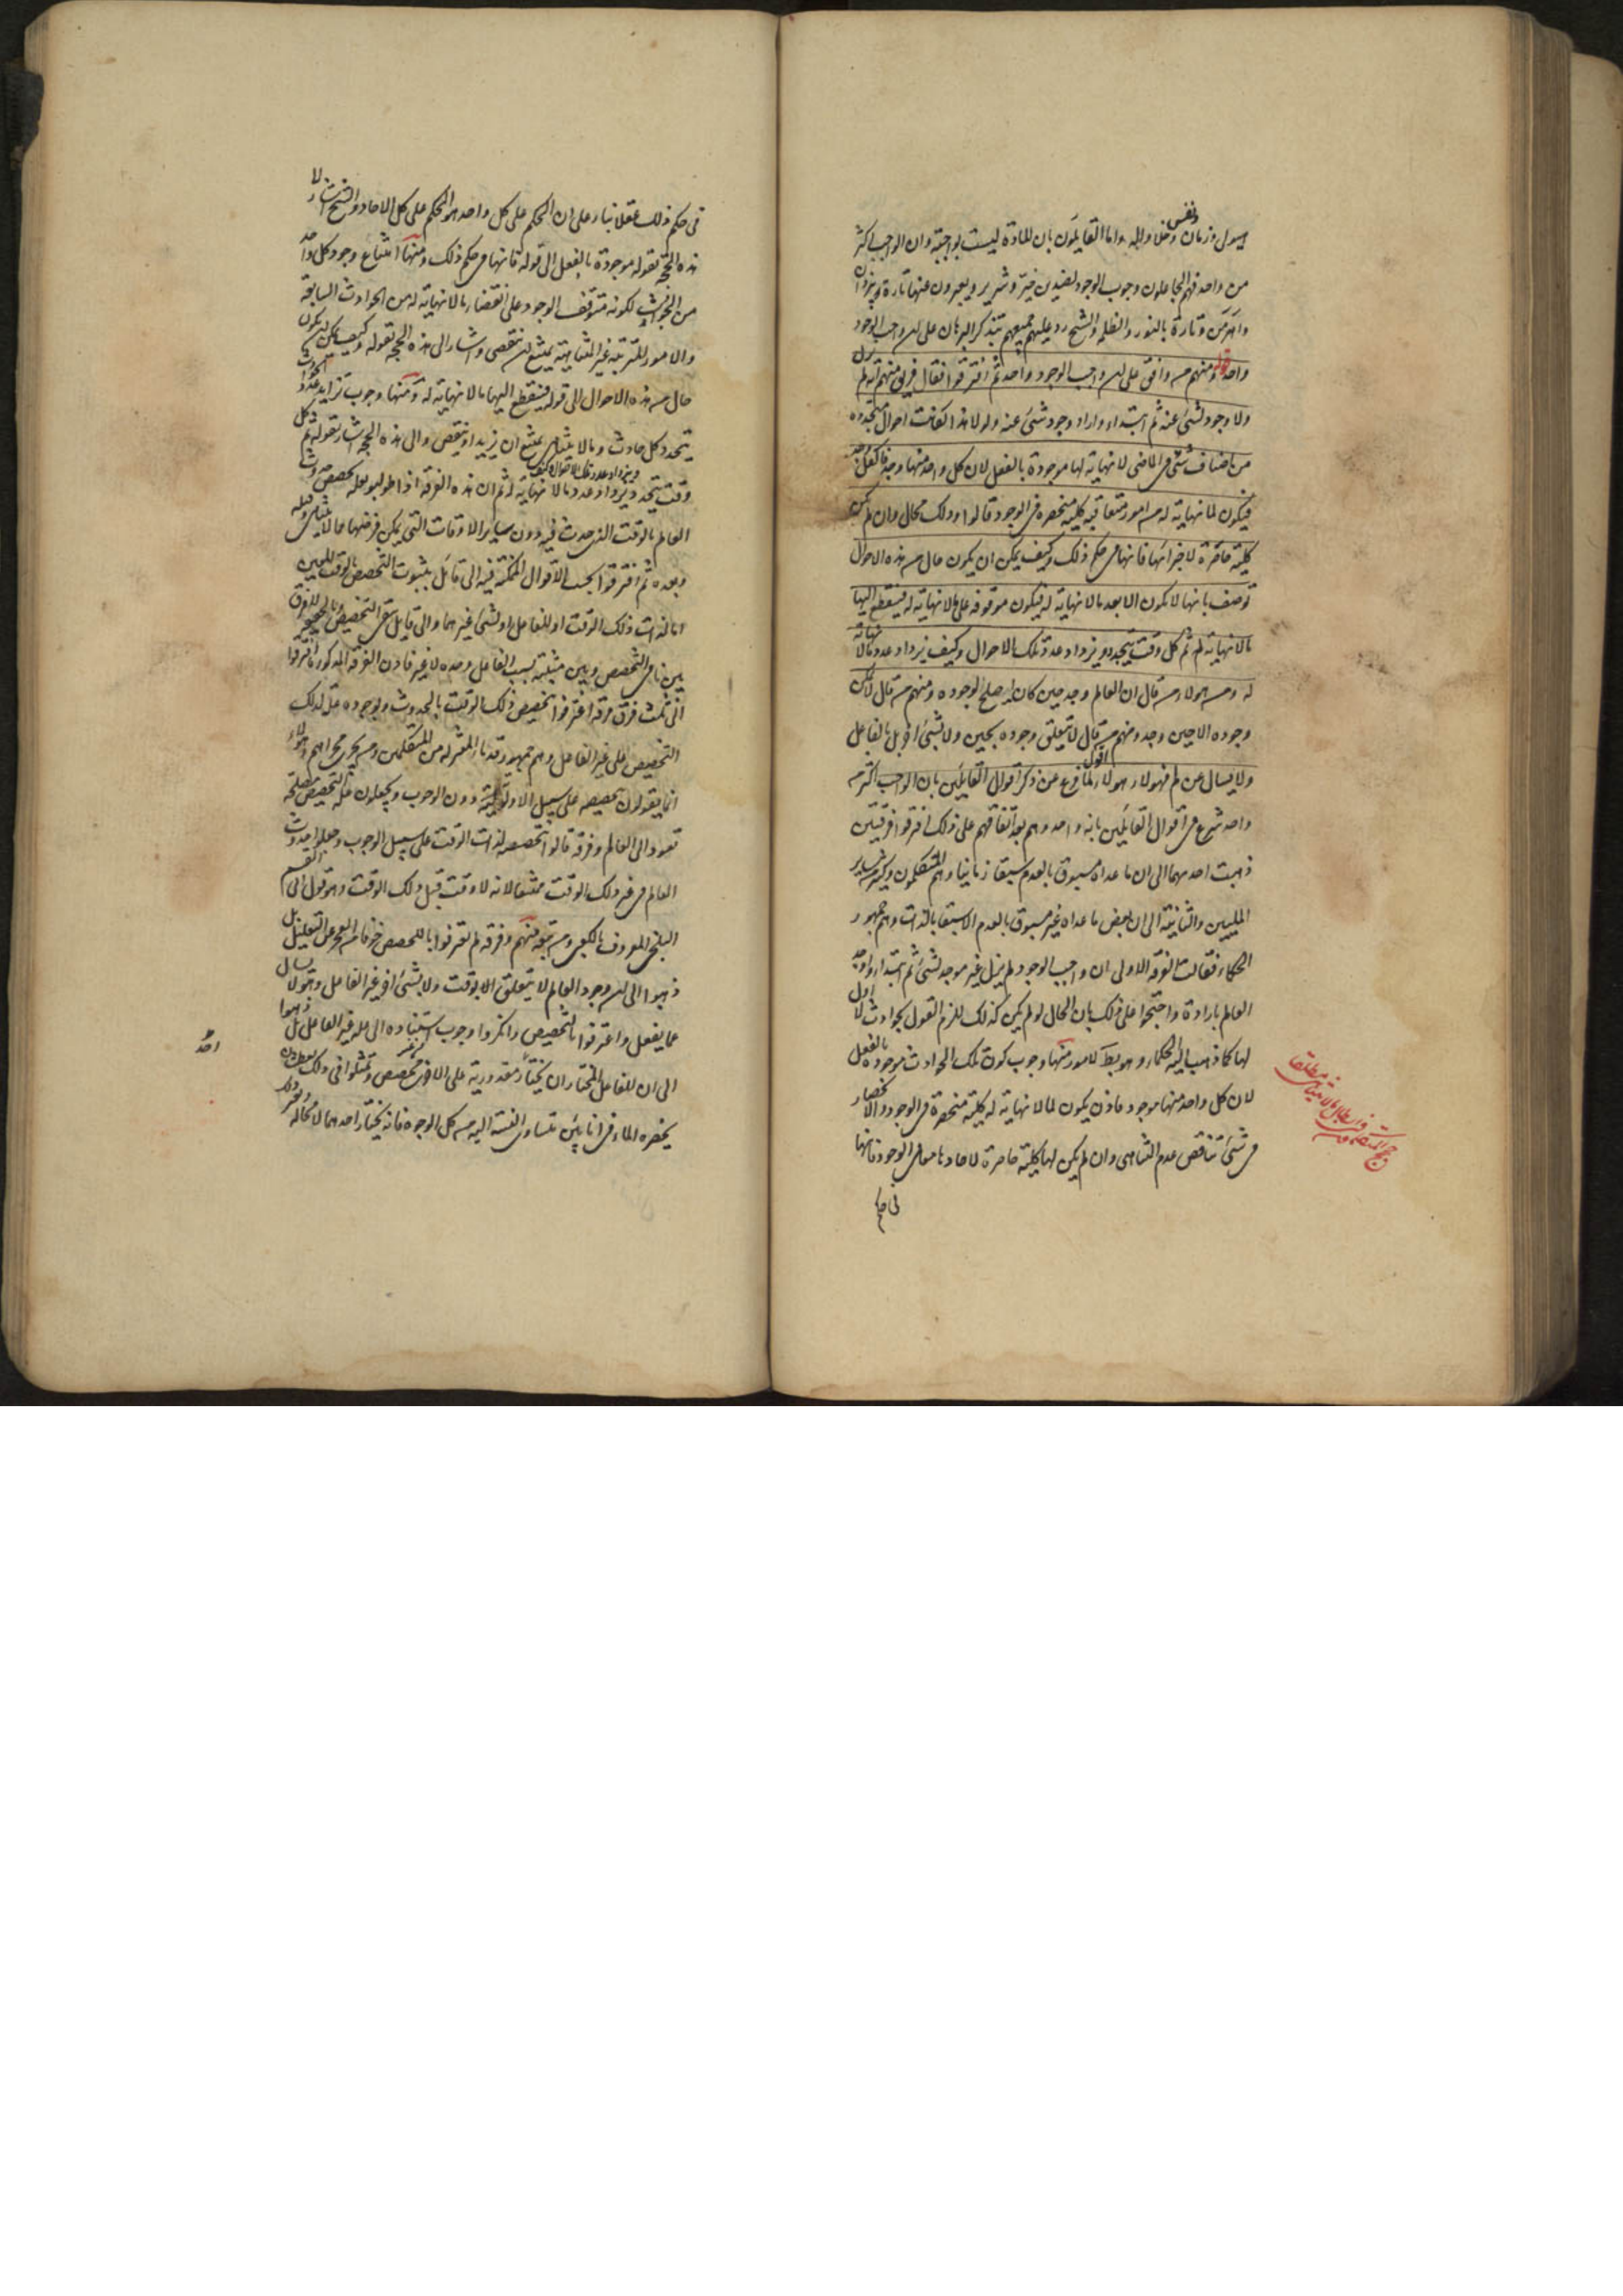 هيولى وزمان ونفس وخلا واله واما القايلون بان المادة ليست بواجبة وان الواجب اكثر
من واحد فهم الجاعلون وجوب الوجود لضدين خير وشرير ويعبرون عنهما تارة بيزدان
واهرمن وتارة بالنور والظلمة والشيخ رد عليهم جميعهم بتذكر البرهان على ان واجب الوجود
واحد قوله ومنهم من وافق على ان واجب الوجود واحد ثم افترقوا فقال فريق منهم انه لم يزل
ولا وجود لشئ عنه ثم ابتداء واراد وجود شئ عنه ولولا هذا لكانت احوال متجددة
من اصناف شتى فى الماضى لا نهاية لها موجودة بالفعل لان كل واحد منها وجد فالكل وجد
فيكون لما لا نهاية له من امور متعاقبة كلية منحصرة فى الوجود قالوا وذلك محال وان لم تكن
كلية حاصرة لاجزائها فانها فى حكم ذلك وكيف يمكن ان يكون حال من هذه الاحوال
توصف بانها لا تكون الا بعد ما لا نهاية له فيكون موقوفة على ما لا نهاية له فينقطع اليها
ما لا نهاية له ثم كل وقت يتجدد يزداد عدة تلك الاحوال وكيف يزداد عدد ما لا نهاية
له ومن هولاء من قال ان العالم وجد حين كان اصلح لوجوده ومنهم من قال لم يمكن
وجوده الا حين وجد ومنهم من قال لا يتعلق وجوده بحين ولا بشئ اخر بل بالفاعل
ولا يسال عن لم فهولاء هولاء اقول لما فرغ من ذكر اقوال القايلين بان الواجب اكثر من
واحد شرع فى اقوال القايلين بانه واحد وهم بعد اتفاقهم على ذلك افترقوا فرقتين
ذهبت احديهما الى ان ما عداه مسبوق بالعدم سبقا زمانيا وهم المتكلمون وكثير من ساير
المليين والثانية الى ان بعض ما عداه غير مسبوق بالعدم الا سبقا بالذات وهم جمهور
الحكماء فقالت الفرقة الاولى ان واجب الوجود لم يزل غير موجد لشئ ثم ابتداء واوجد
العالم بارادة واحتجوا على ذلك بان الحال لو لم يكن كذلك للزم القول بحوادث لا اول
لها كما ذهب اليه الحكماء وهو بط لامور منها وجوب كون تلك الحوادث موجودة بالفعل
لان كل واحد منها موجود فاذن يكون لما لا نهاية له كلية منحصرة فى الوجود والانحصار
فى شئ يناقض عدم التناهى وان لم يكن لها كلية حاصرة لاحادها معا فى الوجود فانها
فى حكم
فى حكم ذلك عقلا بناء على ان الحكم على كل واحد هو الحكم على كل الاحاد والشيخ اشار الى
هذه الحجة بقوله موجودة بالفعل الى قوله فانها فى حكم ذلك ومنها امتناع وجود كل واحد
من الحوادث لكونه متوقف الوجود على انقضاء ما لا نهاية له من الحوادث السابقة
والامور المترتبة غير المتناهية يمتنع ان تنقضى واشار الى هذه الحجة بقوله وكيف يمكن ان يكون
حال من هذه الاحوال الى قوله فينقطع اليها ما لا نهاية له ومنها وجوب تزايد عدد الحوادث
بتجدد كل حادث وما لا يتناهى يمتنع ان يزيد او ينقص والى هذه الحجة اشار بقوله ثم كل
وقت يتجدد يزداد عدد تلك الاحوال وكيف يزداد عدد ما لا نهاية له ثم ان هذه الفرقة اذا طولبوا بعلة تخصص حدوث
العالم بالوقت الذى حدث فيه دون ساير الاوقات التى يمكن فرضها مما لا يتناهى قبله
وبعده ثم افترقوا بحسب الاقوال الممكنة فيه الى قائل بثبوت التخصص بالوقت المعين
اما لذات ذلك الوقت او للفاعل او لشئ غيرهما والى قايل بنفى التخصيص
بين نافى التخصص وبين مثبته بسبب الفاعل وحده لا غير فاذن الفرقة المذكورة افترقوا
الى ثلث فرق فرقة اعترفوا بتخصيص ذلك الوقت بالحدوث وبوجود علة لذلك
التخصيص على غير الفاعل وهم جمهور قدماء المعتزلة من المتكلمين ومن يجرى مجراهم وهولاء
انما يقولون بتخصيصه على سبيل الاولوية دون الوجوب ويجعلون علة التخصيص مصلحة
تعود الى العالم وفرقة قالوا بتخصصه لذات الوقت على سبيل الوجوب وجعلوا حدوث
العالم فى غير ذلك الوقت ممتنعا لانه لا وقت قبل ذلك الوقت وهو قول ابى القسم
البلخى المعروف بالكعبى ومن تبعه منهم وفرقة لم يعترفوا بالتخصص خوفا من العجز عن التعليل بل
ذهبوا الى ان وجود العالم لا يتعلق الا بوقت ولا بشئ اخر غير الفاعل وهو لا يسال
عما يفعل واعترفوا بالتخصيص وانكروا وجوب استناده الى علة غير الفاعل بل ذهبوا
الى ان الفاعل المختار ان يختار احد مقدوريه على الاخر من غير مخصص وتمثلوا فى ذلك بعطشان
يحضره الماء فى انائين متساوى النسبة اليه من كل الوجوه فانه يختار احدهما لا محالة
احد